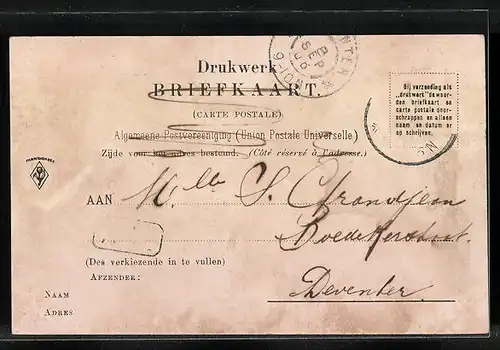 Drukwerk
BRIEFKAART.
(CARTE POSTALE)
Algemeene Postvereeniging (Union Postale Universelle)
Zijde voor het adres bestemd. (Côté réservé à l'adresse.)
Bij verzending als
„drukwerk” de woorden
briefkaart en
carte postale doorschrappen
en alleen
naam en datum er
op schrijven.
AAN Mlle S. Grandjean
Deventer
(Des verkiezende in te vullen)
AFZENDER:
NAAM
ADRES